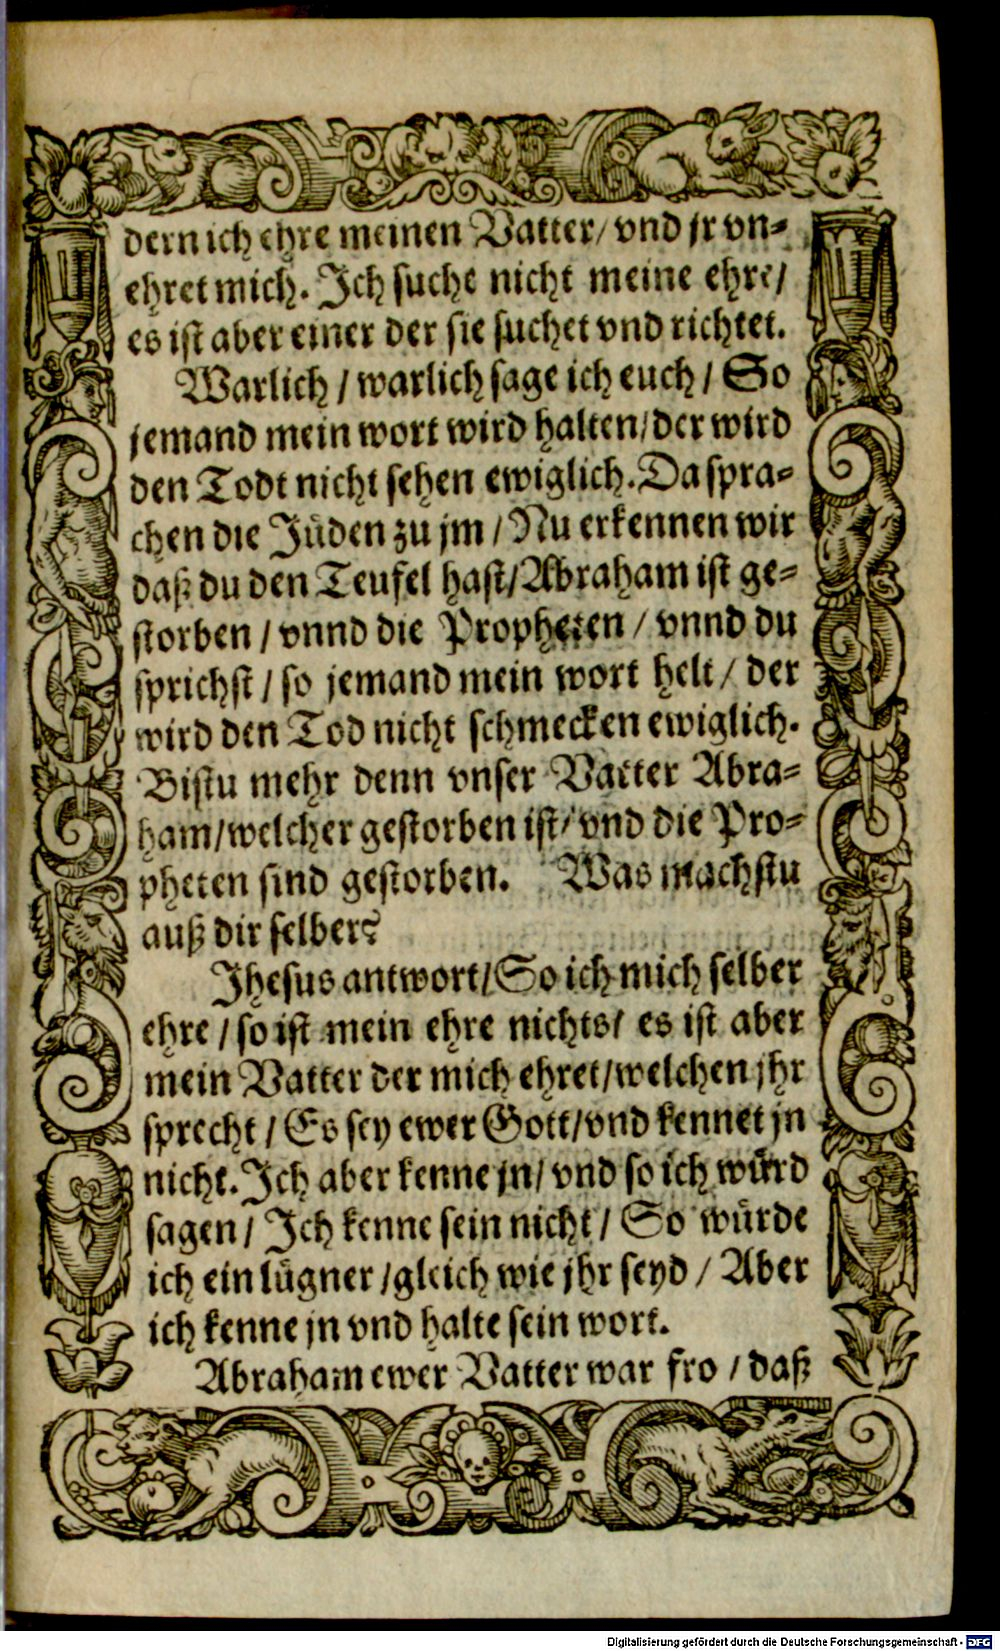 dern ich ehre meinen Vatter/ vnd jr vn-
ehret mich. Ich suche nicht meine ehre/
es ist aber einer der sie suchet vnd richtet.
Warlich / warlich sage ich euch / So
jemand mein wort wird halten/der wird
den Todt nicht sehen ewiglich. Da spra-
chen die Jüden zu jm / Nu erkennen wir
daß du den Teufel hast/Abraham ist ge-
storben / vnnd die Propheten / vnnd du
sprichst / so jemand mein wort helt / der
wird den Tod nicht schmecken ewiglich.
Bistu mehr denn vnser Vatter Abra-
ham/welcher gestorben ist/ vnd die Pro-
pheten sind gestorben. Was machstu
auß dir selber?
Jhesus antwort/So ich mich selber
ehre / so ist mein ehre nichts/ es ist aber
mein Vatter der mich ehret/welchen jhr
sprecht / Es sey ewer Gott/vnd kennet jn
nicht. Ich aber kenne jn/ vnd so ich würd
sagen / Ich kenne sein nicht / So würde
ich ein lügner /gleich wie jhr seyd / Aber
ich kenne jn vnd halte sein wort.
Abraham ewer Vatter war fro / daß
Digitalisierung gefördert durch die Deutsche Forschungsgemeinschaft - DFG